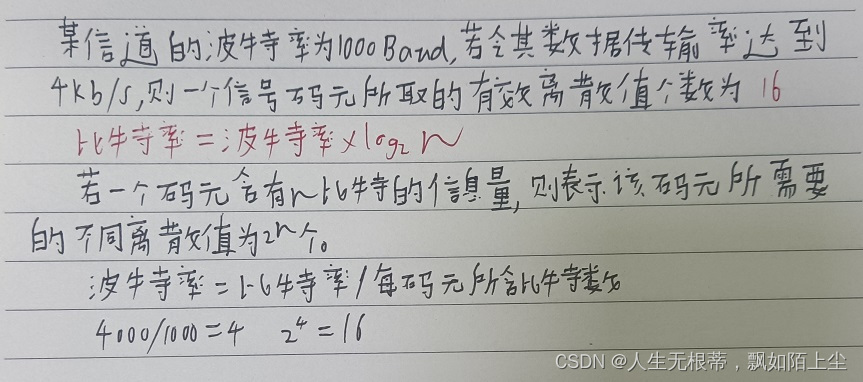 某信道的波特率为1000Baud,若令其数据传输率达到
4kb/s,则一个信号码元所取的有效离散值个数为 16
比特率=波特率×log₂n
若一个码元含有n比特的信息量,则表示该码元所需要
的不同离散值为2n个。
波特率=比特率/每码元所含比特数
4000/1000=4 2⁴=16
CSDN @人生无根蒂,飘如陌上尘